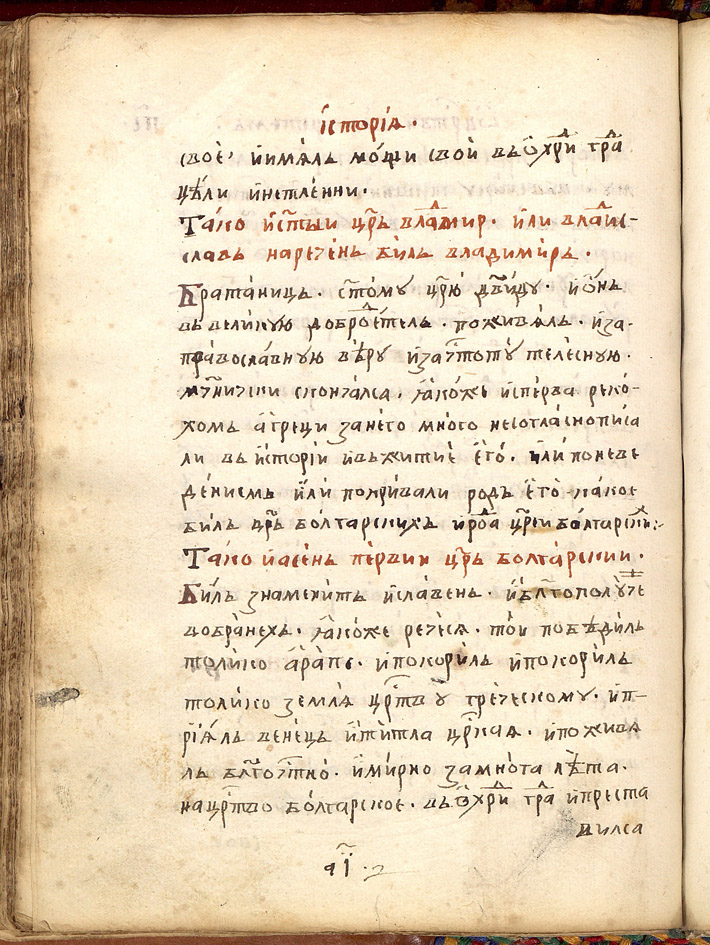 їсторїѧ ·
своѐ, и҆имѧлъ мо́щи свои̑ въѻ҆хрⷣи граⷣ
цѣ́ли и҆нетлѣ́нни ·
Та́ко и҆ст҃ы́и цр҃ь влаⷣмир · и҆ли влаⷣис-
славъ нарече́нъ би́лъ владими́ръ ·
Братаницъ · ст҃ому цр҃ю дв҃иду · и҆ѻ́нъ
въ вели́кую доброⷣѣтель · поживѧлъ · иза-
православную вѣру и҆зачⷭ҇тоту̀ теле́сную ·
мч҃ни́чки сконча́лса · ꙗ҆́коже и҆спе́рва реко-
хомъ а҆греци занего̀ много несогла́снопи́са
ли въ и҆сторїи и҆въ житиѐ є҆го̀ · и҆ли поневе
де́ниемъ и҆ли покривали родъ є҆го̀ како́е
би́лъ цр҃ь бо́лгарскихъ и҆роⷣа цр҃кїи бо́лгарскиⷯ :·
Та́ко и҆асе́нь пе́рвии цр҃ь болга́рскии ·
Би́лъ знаме́нитъ и҆сла́венъ · и҆бл҃гополу́че
вобра́нехъ · ꙗ҆́коже рече́сѧ · то́и побѣди́лъ
толи́ко а҆ра́пе · и҆покори́лъ и҆покори́лъ
толи́ко землѧ̀ црⷭ҇тву гре́ческому · и҆п-
рїѧ́лъ вене́цъ и҆ти́тла цр҃каѧ · и҆поживѧ
лъ бл҃гочⷭ҇тно · и҆ми́рно замно́га лѣ́та ·
нацрⷭ҇тво бо́лгарское · въѻ҆хрⷣи граⷣ и҆преста
вилса